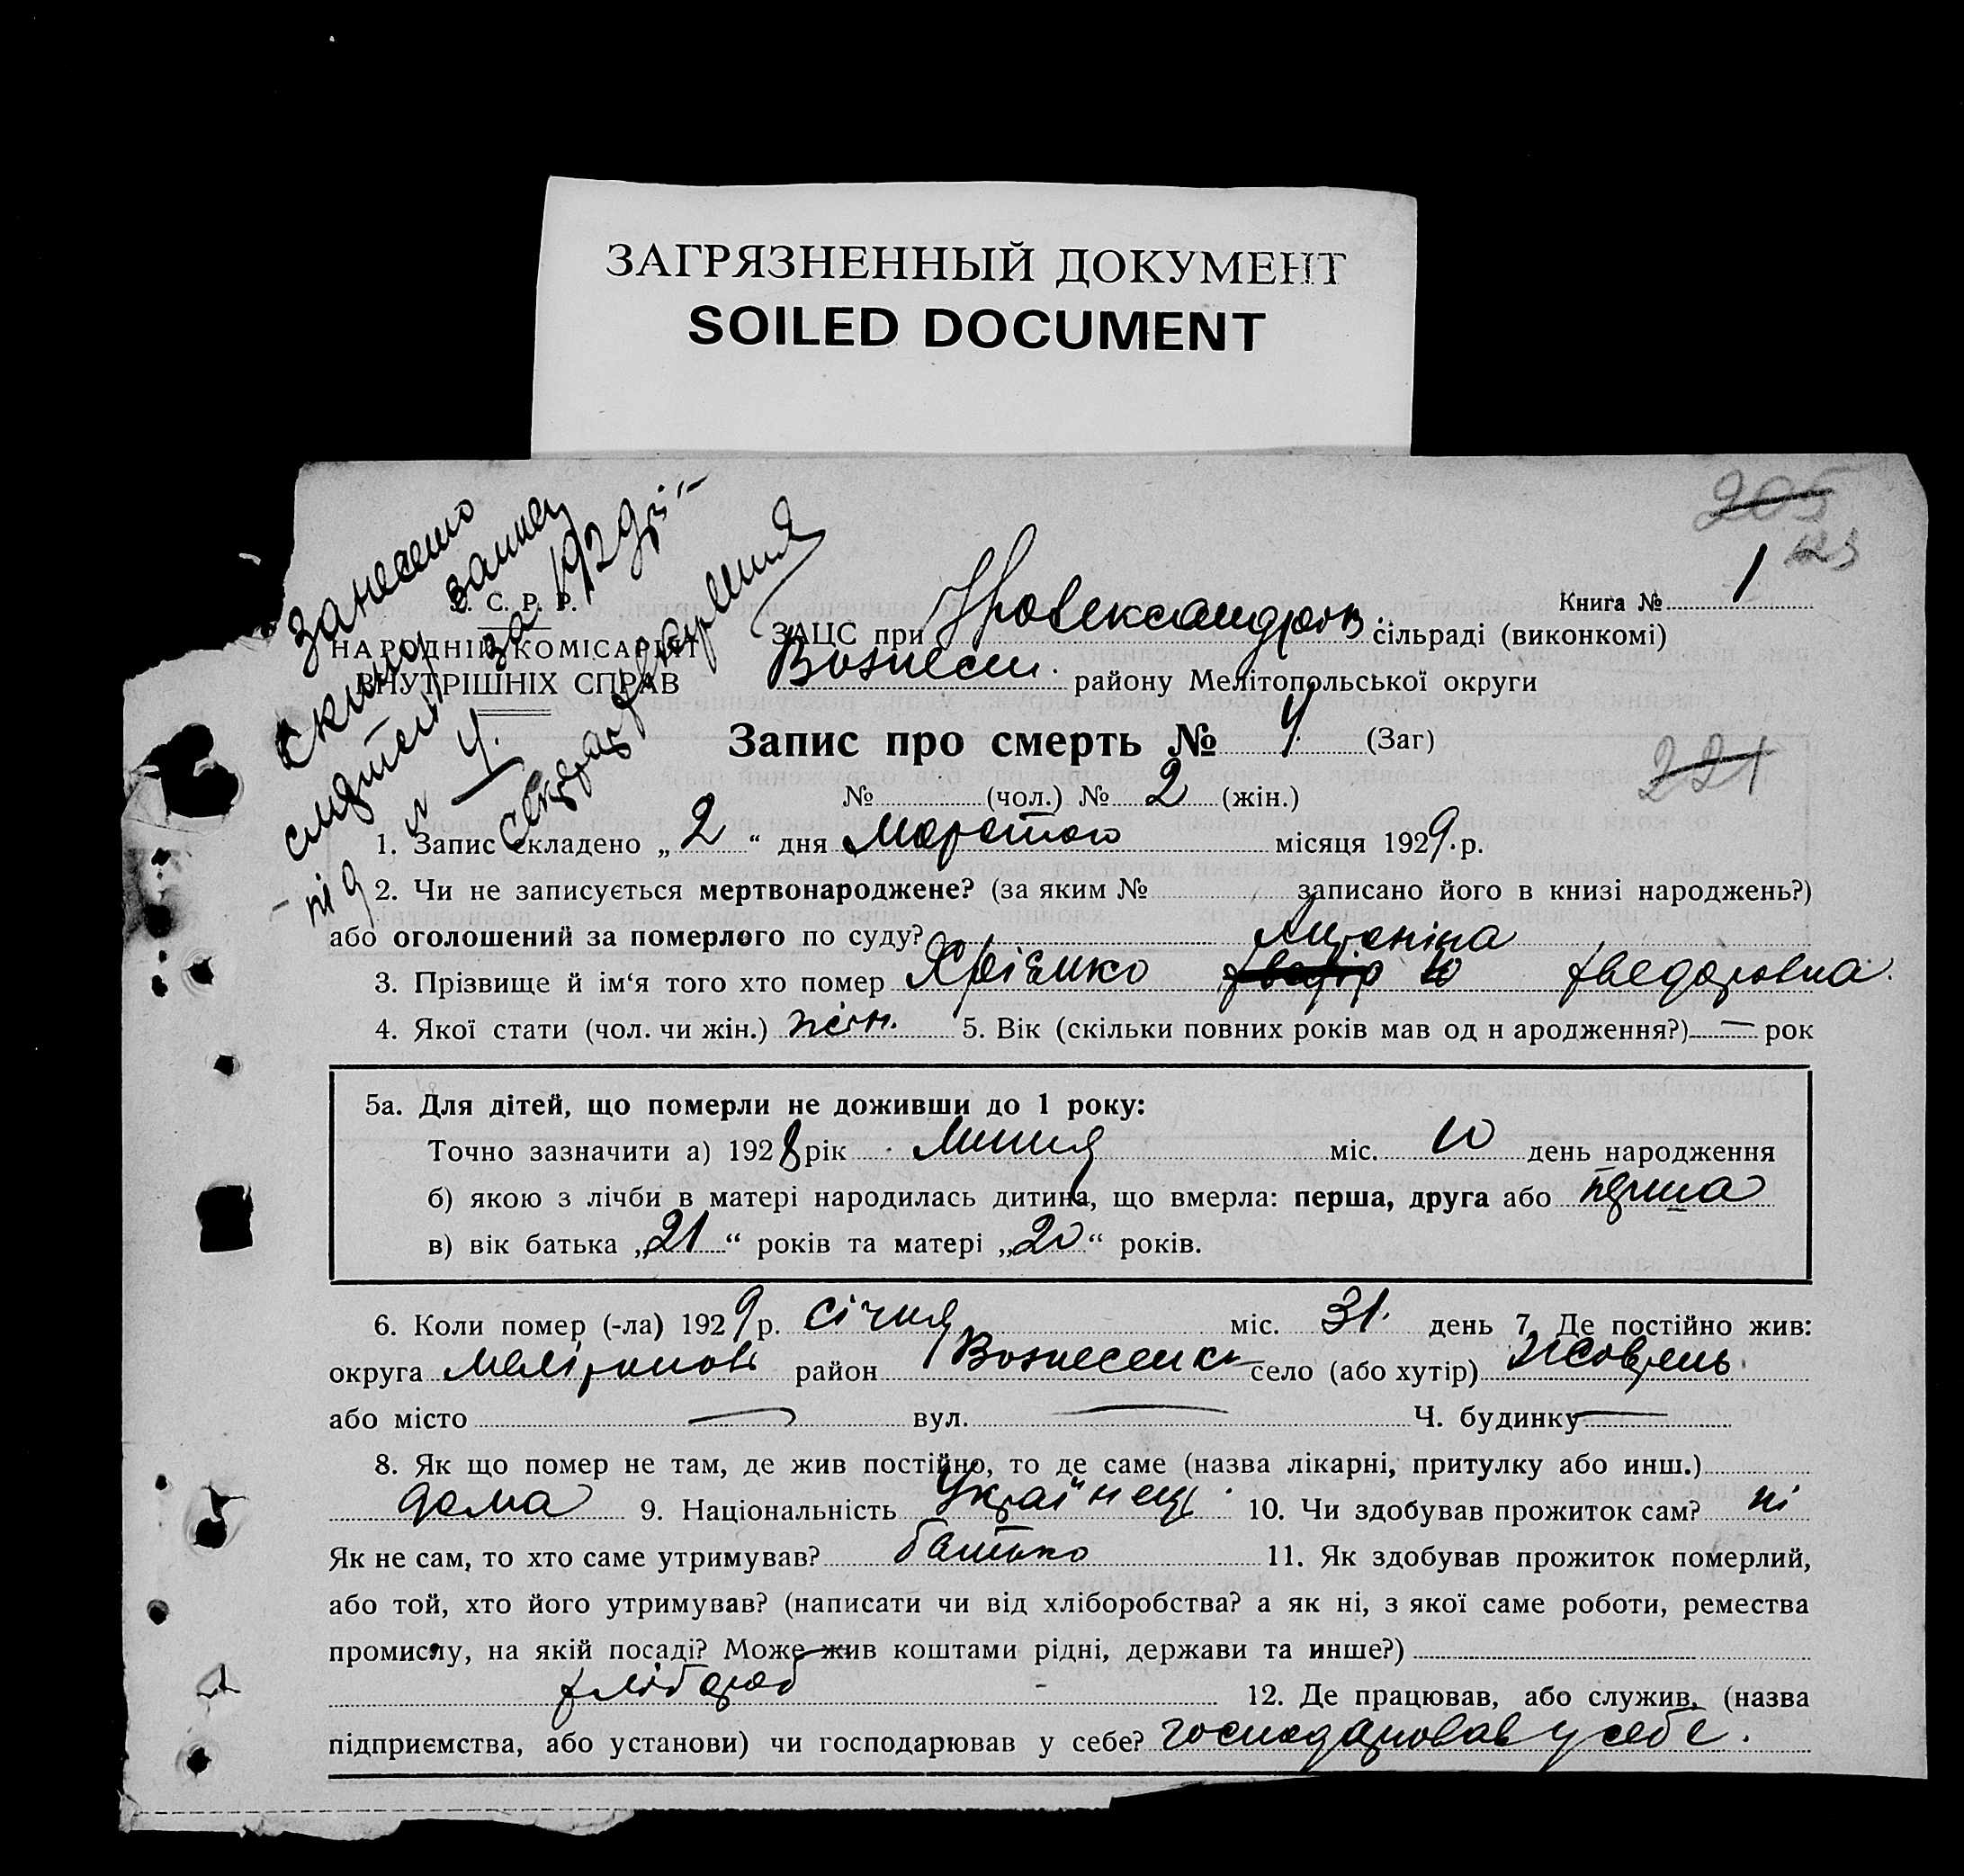 ЗАГРЯЗНЕННЫЙ ДОКУМЕНТ
SOILED DOCUMENT
205
123
Занесено
за 1929 р.
під № 4.
У. С. Р. Р.
НАРОДНІЙ КОМІСАРІЯТ
ВНУТРІШНІХ СПРАВ
Книга № 1
ЗАЦС при сільраді (виконкомі)
Вознесен. району Мелітопольської округи
Запис про смерть № 4 (Заг)
221
№ (чол.) № 2 (жін.)
1. Запис складено „ 2 “ дня місяця 1929. р.
2. Чи не записується мертвонароджене? (за яким № записано його в книзі народжень?)
або оголошений за померлого по суду?
Антоніна
3. Прізвище й ім‘я того хто помер Хведоровна.
4. Якої статі (чол. чи жін.) жін. 5. Вік (скільки повних років мав од н ародження?) — рок
5а. Для дітей, що померли не доживши до 1 року:
Точно зазначити а) 1928 рік Липня міс. 10 день народження
б) якою з лічби в матері народилась дитина, що вмерла: перша, друга або перша
в) вік батька „21“ років та матері „20“ років.
6. Коли помер (-ла) 1929 р. Січня міс. 31. день 7. Де постійно жив:
округа район Вознесенк село (або хутір) Жовтень
або місто — вул. — Ч. будинку —
8. Як що помер не там, де жив постійно, то де саме (назва лікарні, притулку або инш.)
дома 9. Національність Українец. 10. Чи здобував прожиток сам? ні
Як не сам, то хто саме утримував? батько 11. Як здобував прожиток померлий,
або той, хто його утримував? (написати чи від хліборобства? а як ні, з якої саме роботи, ремества
промислу, на якій посаді? Може жив коштами рідні, держави та инше?)
хлібороб 12. Де працював, або служив, (назва
підприємства, або установи) чи господарював у себе? господарював у себе.